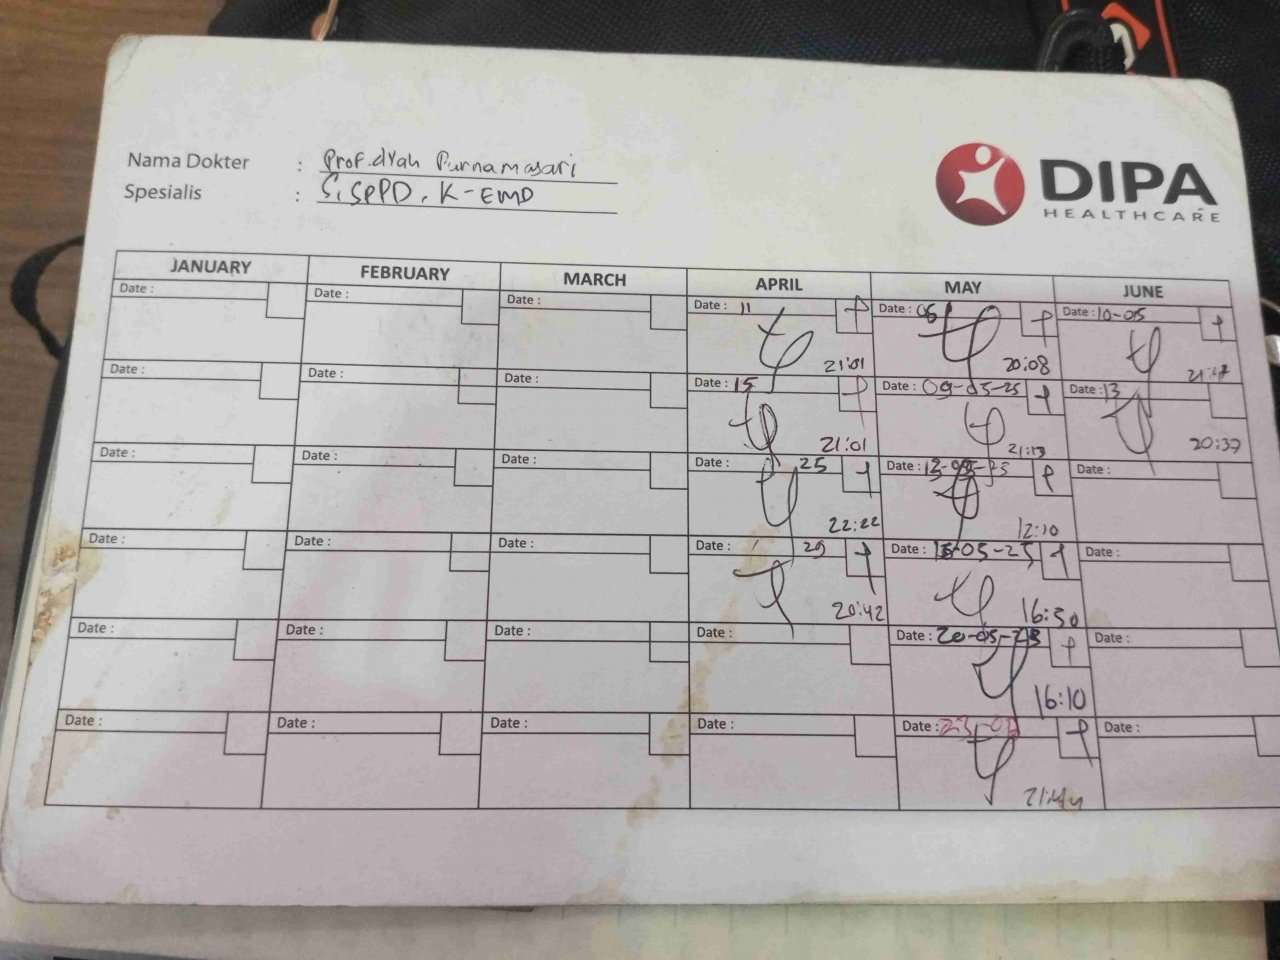 Nama Dokter : Prof. dyah Purnamasari
Spesialis : S, SPPD, K-EMD
DIPA
HEALTHCARE
JANUARY FEBRUARY MARCH APRIL MAY JUNE
Date : Date : Date : Date : 11 Date : 06 Date : 10-05
21:01 20:08
Date : Date : Date : Date : 15 Date : 09-05-25 Date : 13
21:01 21:13 20:37
Date : Date : Date : Date : 25 Date : 13-05-25 Date :
22:22 12:10
Date : Date : Date : Date : 29 Date : 15-05-25 Date :
20:42 16:30
Date : Date : Date : Date : Date : 20-05-25 Date :
16:10
Date : Date : Date : Date : Date : 23-05 Date :
21:44